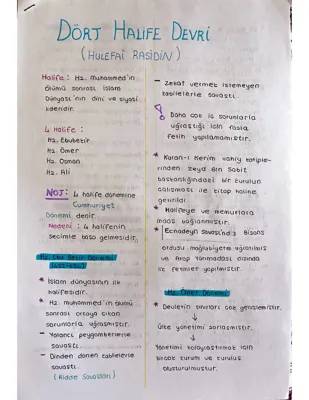 DÖRT HALİFE DEVRİ
(HULEFAİ RAŞİDİN)
Halife: Hz. Muhammed'in
ölümü sonrası İslam
Dünyası'nın dini ve siyasi
lideridir.
4 Halife:
Hz. Ebubekir
Hz. Ömer
Hz. Osman
Hz. Ali
NOT: 4 halife dönemine
Cumhuriyet
Dönemi denir.
Nedeni: 4 halifenin
seçimle başa gelmesidir.
Hz. Ebu Bekir Dönemi
* İslam dünyasının ilk
halifesidir.
* Hz. Muhammed'in ölümü
sonrası ortaya çıkan
sorunlarla uğraşmıştır.
- Yalancı peygamberlerle
savaştı.
- Dinden dönen kabilelerle
savaştı.
(Ridde Savaşları)
- Zekat vermek istemeyen
kabilelerle savaştı.
Daha çok iç sorunlarla
uğraştığı için fazla
fetih yapılamamıştır.
* Kuran-ı Kerim vahiy katiple-
rinden Zeyd Bin Sabit
başkanlığındaki bir kurulun
çalışması ile kitap haline
getirildi
* Halifeye ve memurlara
maaş bağlanmıştır.
* Ecnadeyn Savaşı'nda; Bizans
ordusu mağlubiyete uğratılmış
ve Arap Yarımadası dışında
ilk fetihler yapılmıştır.
Hz. Ömer Dönemi
* Devletin sınırları çok genişlemiştir.
↓
Ülke yönetimi zorlaşmıştır.
↓
Yönetimi kolaylaştırmak için
birçok kurum ve kuruluş
oluşturulmuştur.